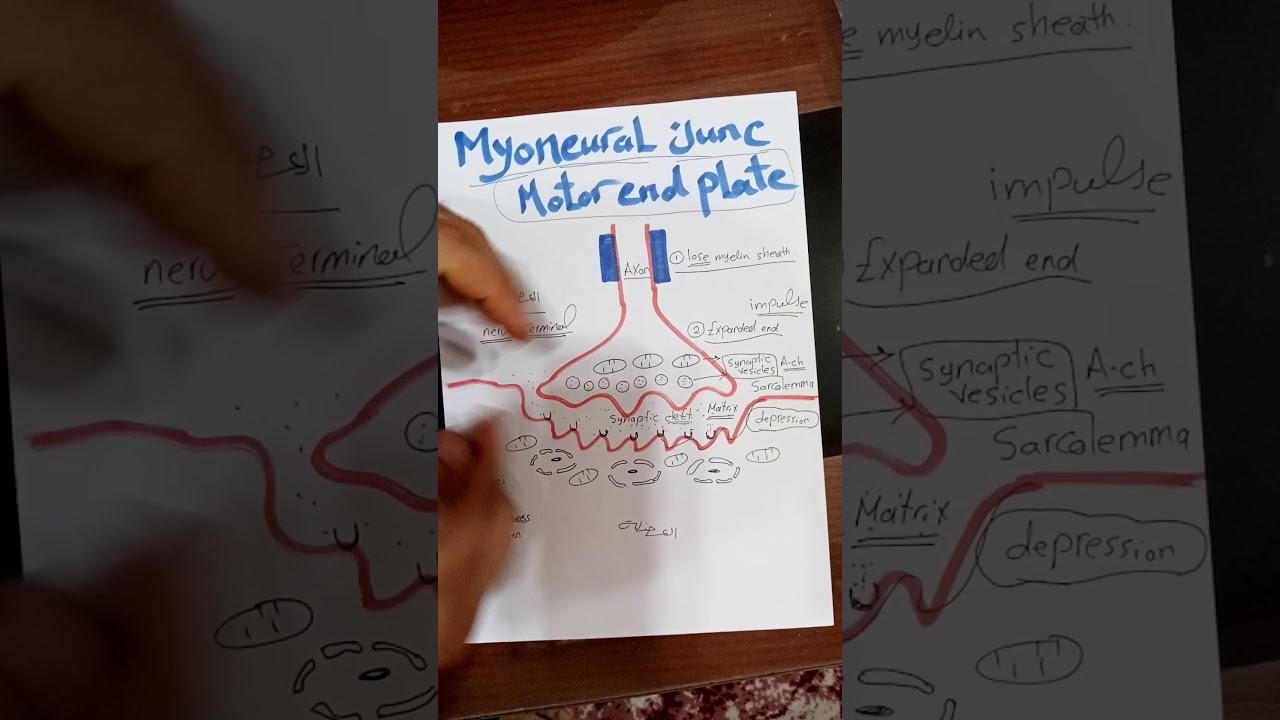 Myoneural Junc
Motor end plate
Axon
① lose myelin sheath.
impulse
② Expanded end
synaptic vesicles
A-ch
Sarcolemma
Synaptic cleft
Matrix
depression